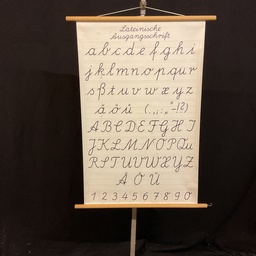 Lateinische
Ausgangsschrift
a b c d e f g h i
j k l m n o p qu r
s ß t u v w x y z
ä ö ü (. , : „ “ – ! ?)
A B C D E F G H I
J K L M N O P Qu
R S T U V W X Y Z
Ä Ö Ü
1 2 3 4 5 6 7 8 9 0